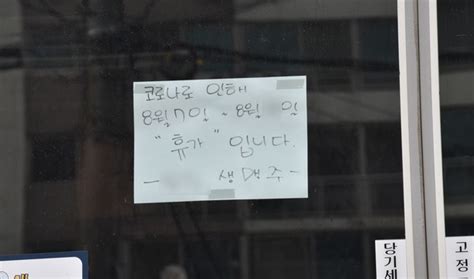 코로나로 인해
8월 7일 ~ 8월 일
"휴가" 입니다.
- 생맥주 -
당기세
고정